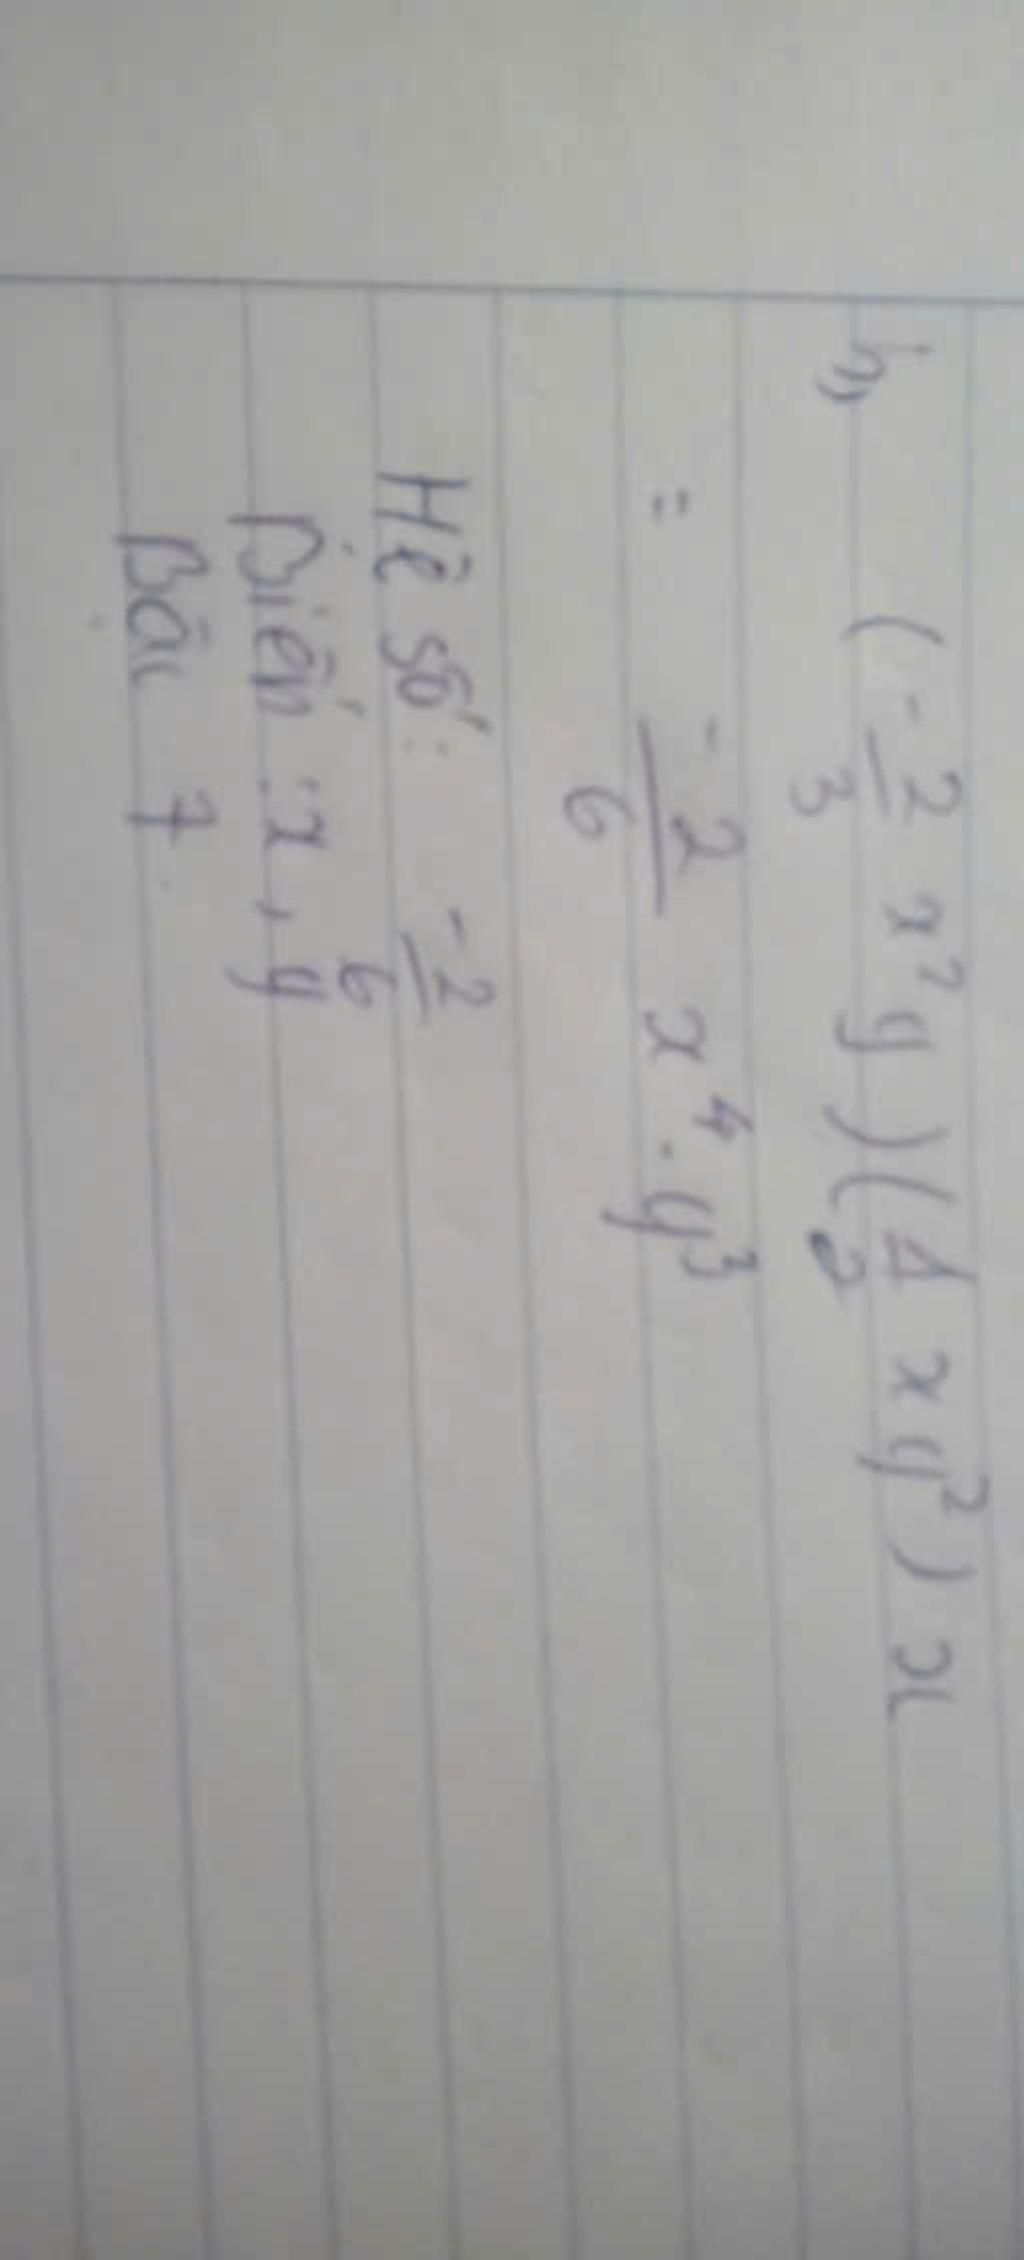 h,, (-2/3 x²y)(1/2 xy²)x
= -2/6 x⁴.y³
Hệ số: -2/6
Biến: x, y
Bậc 7